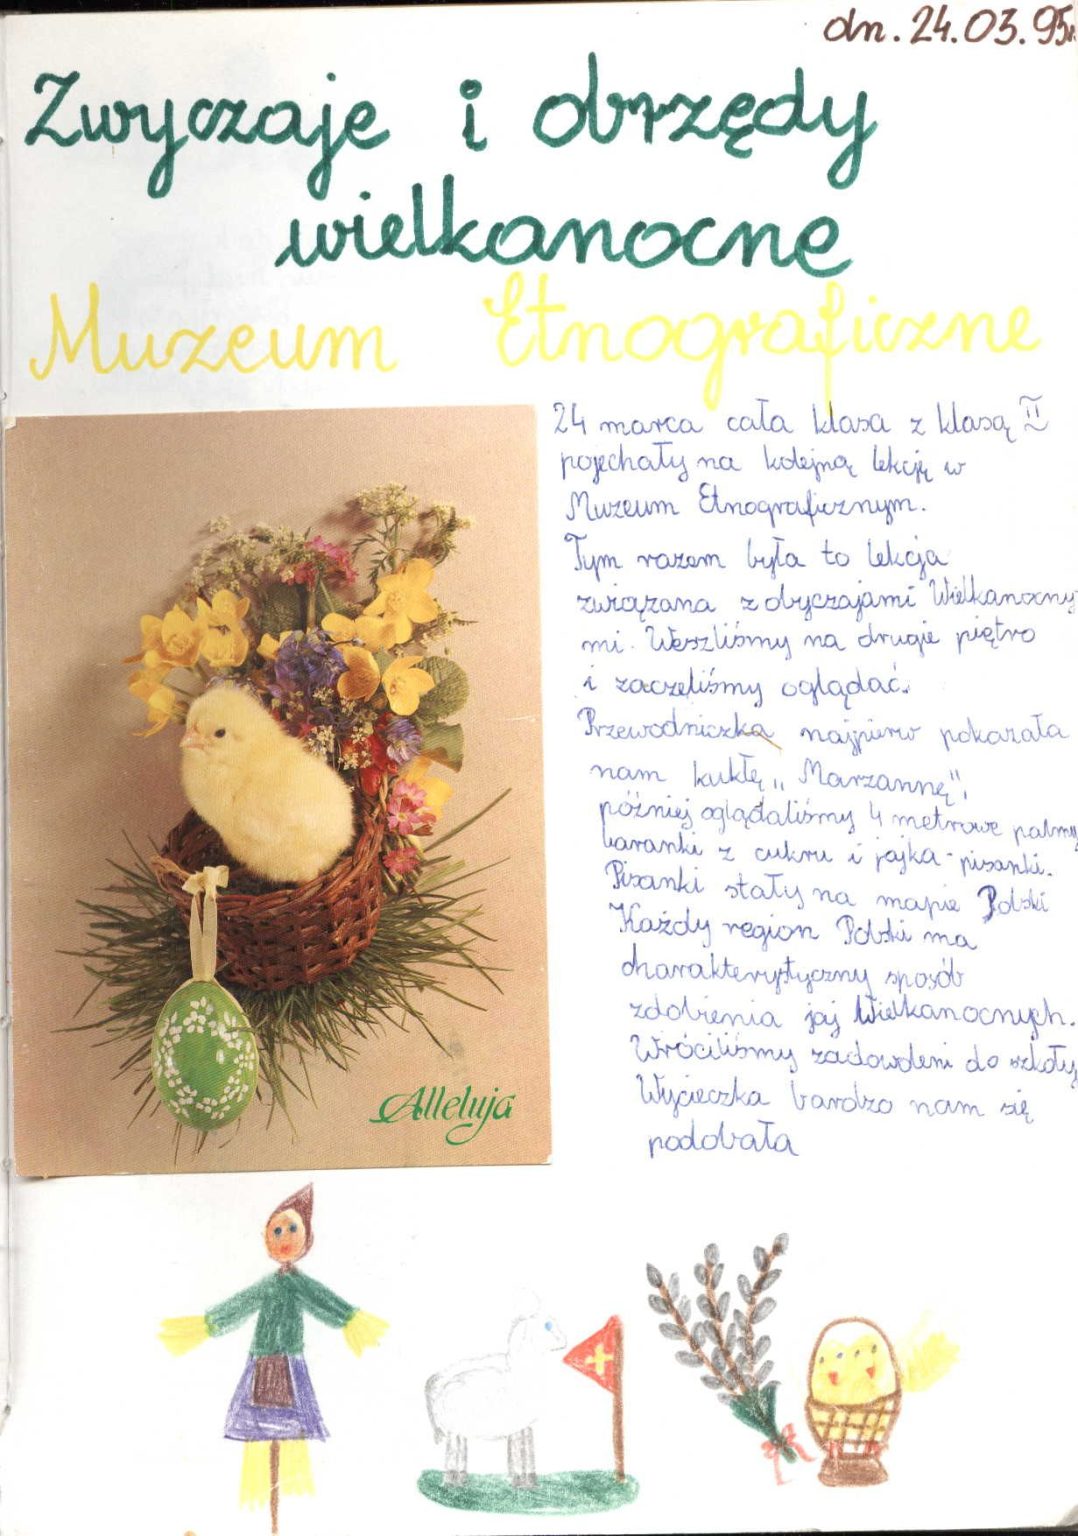 dn. 24.03.95r.
Zwyczaje i obrzędy
wielkanocne
Muzeum Etnograficzne
24 marca cała klasa z klasą II
pojechały na kolejną lekcję w
Muzeum Etnograficznym.
Tym razem była to lekcja
związana z obyczajami Wielkanocny-
mi. Weszliśmy na drugie piętro
i zaczeliśmy oglądać.
Przewodniczka najpierw pokazała
nam kukłę „Marzannę",
później oglądaliśmy 4 metrowe palmy
baranki z cukru i jajka - pisanki.
Pisanki stały na mapie Polski
Każdy region Polski ma
charakterystyczny sposób
zdobienia jaj Wielkanocnych.
Wróciliśmy zadowoleni do szkoły
Wycieczka bardzo nam się
podobała
Alleluja